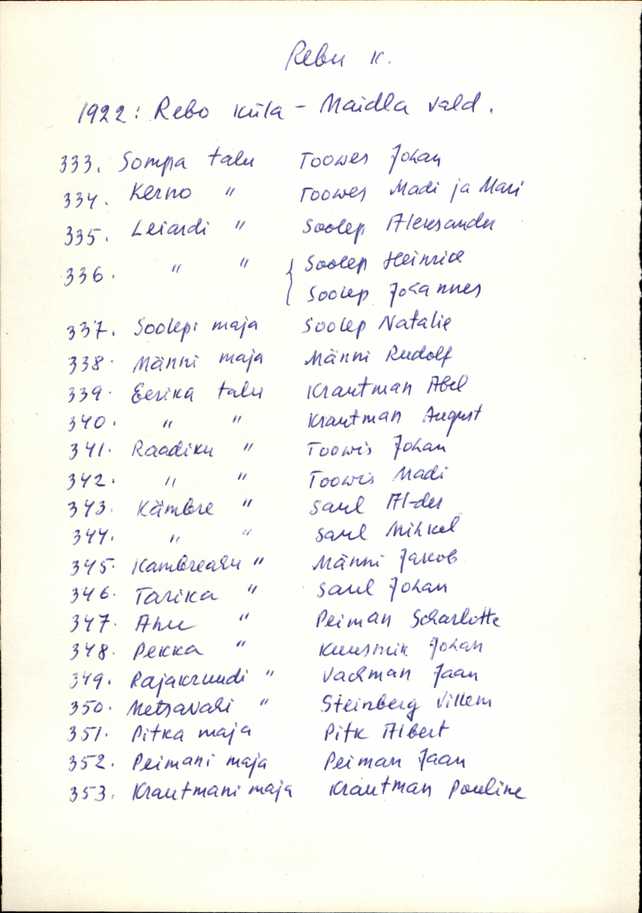 Rebu k.
1922: Rebo küla - Maidla vald.
333. Sompa talu Toowes Johan
334. Kerno " Toowes Madi ja Mari
335. Leiardi " Soolep Aleksander
336. " " { Soolep Heinrich
Soolep Johannes
337. Soolepi maja Soolep Natalie
338. Männi maja Männi Rudolf
339. Eerika talu Krautman Abel
340. " " Krautman August
341. Raadiku " Toowis Johan
342. " " Toowis Madi
343. Kämbre " Saul Al-der
344. " " Saul Mihkel
345. Kambreadu " Männi Jakob
346. Tarika " Saul Johan
347. Anu " Peiman Scharlotte
348. Pekka " Kuusmik Johan
349. Rajakruudi " Vachman Jaan
350. Metsavahi " Steinberg Villem
351. Pitka maja Pitk Albert
352. Peimani maja Peiman Jaan
353. Krautmani maja Krautman Pouline